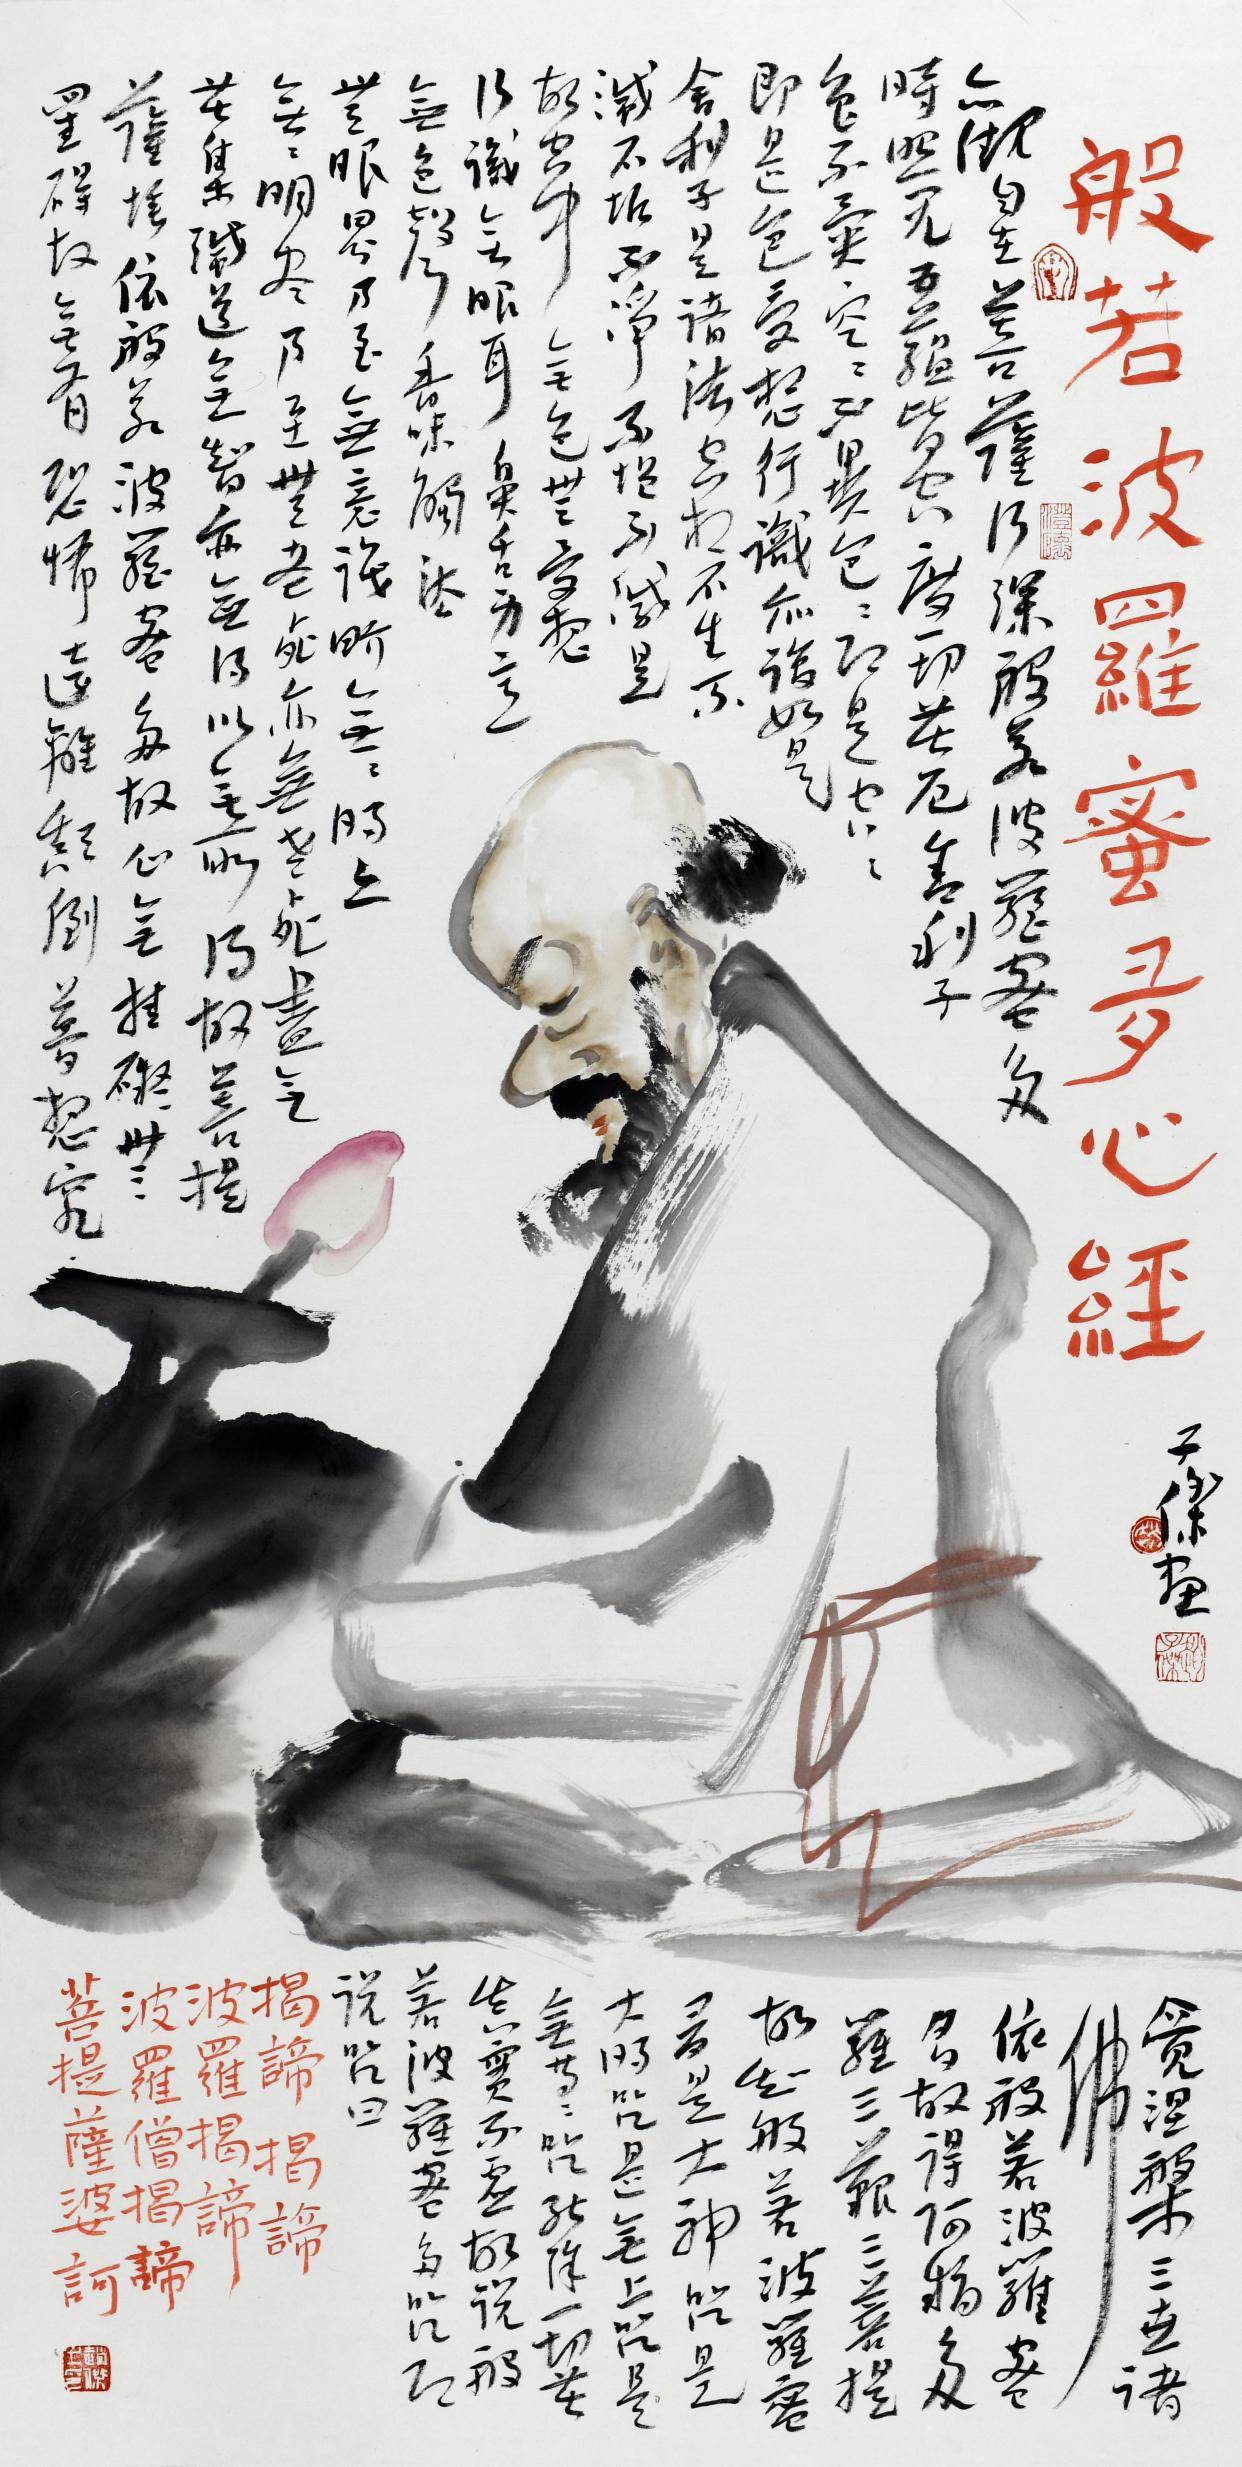 般若波羅蜜多心經
子傑畫
觀自在菩薩行深般若波羅蜜多
時照見五蘊皆空度一切苦厄舍利子
色不異空〻不異色〻即是空〻
即是色受想行識亦復如是
舍利子是諸法空相不生不
滅不垢不淨不增不減是
故空中無色無受想
行識無眼耳鼻舌身意
無色聲香味觸法
無眼界乃至無意識界無〻明亦
無〻明盡乃至無老死亦無老死盡無
苦集滅道無智亦無得以無所得故菩提
薩埵依般若波羅蜜多故心無挂礙無〻
罣礙故無有恐怖遠離顛倒夢想究
竟涅槃三世諸
佛
依般若波羅蜜
多故得阿耨多
羅三藐三菩提
故知般若波羅蜜
多是大神咒是
大明咒是無上咒是
無等〻咒能除一切苦
真實不虛故説般
若波羅蜜多咒即
説咒曰
揭諦揭諦
波羅揭諦
波羅僧揭諦
菩提薩婆訶